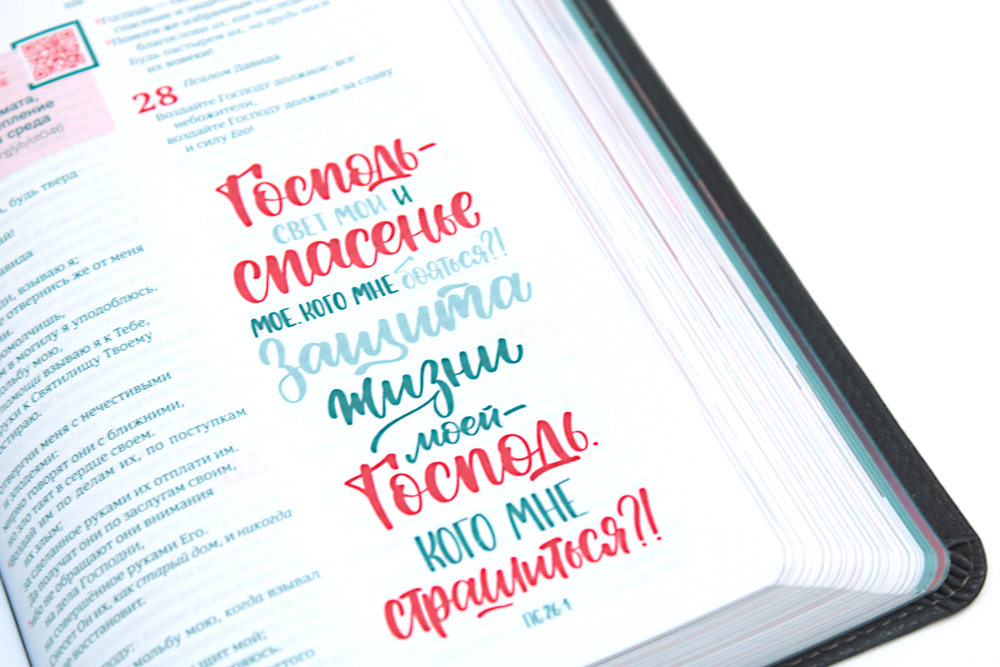 мата,
упление
и среда
, будь тверд
ди, взываю я;
е отвернись же от меня
ромолчишь,
м в могилу я уподоблюсь.
ольбу мою,
помощи взываю я к Тебе,
руки к Святилищу Твоему
остираю.
отвергни меня с нечестивыми
и злодеями:
мирно говорят они с ближними,
но зло таят в сердце своем.
Воздай им по делам их, по поступкам
их злым;
за сделанное руками их отплати им.
Да получат они по заслугам своим,
ибо не обращают они внимания
на дела Господни,
на совершённое руками Его.
Снесет Он их, как старый дом, и никогда
не восстановит.
мольбу мою, когда взывал
Господь —
спасение и защи
Помоги же избранным
благослови их, как наследие
Будь пастырем их, на груди носи
их вовеки!
28 Псалом Давида
Воздайте Господу должное, все
небожители,
воздайте Господу должное за славу
и силу Его!
Господь-
СВЕТ МОЙ И
спасенье
МОЕ. КОГО МНЕ бояться?!
Защита
жизни
моей-
Господь.
КОГО МНЕ
страшиться?!
ПС 26:1